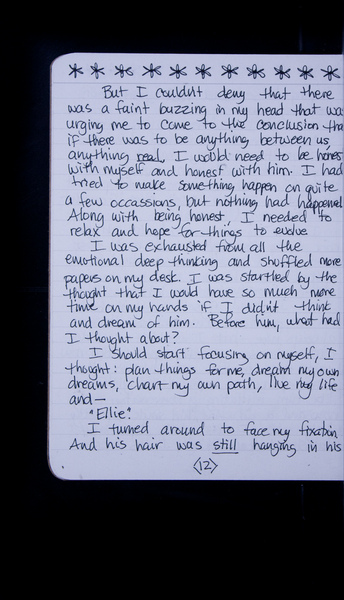 But I couldn't deny that there
was a faint buzzing in my head that was
urging me to come to the conclusion tha
if there was to be anything between us,
anything real, I would need to be hones
with myself and honest with him. I had
tried to make something happen on quite
a few occassions, but nothing had happened.
Along with being honest, I needed to
relax and hope for things to evolve
I was exhausted from all the
emotional deep thinking and shuffled more
papers on my desk. I was startled by the
thought that I would have so much more
time on my hands if I didn't think
and dream of him. Before him, what had
I thought about?
I should start focusing on myself, I
thought: plan things for me, dream my own
dreams, chart my own path, live my life
and—
"Ellie?"
I turned around to face my fixation
And his hair was still hanging in his
<12>